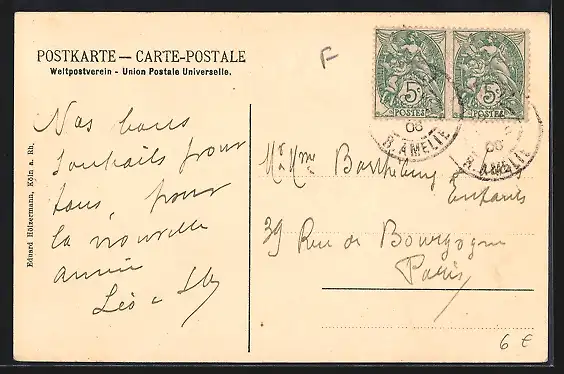 POSTKARTE — CARTE-POSTALE
Weltpostverein - Union Postale Universelle.
F
5c
POSTES
5c
POSTES
06
R. AMELIE
06
R. AMELIE
Eduard Hülzermann, Köln a. Rh.
Nos bons
souhaits pour
tous, pour
la nouvelle
année
Léo
Mr Mme
Enfants
39 Rue de Bourgogne
Paris
6 €